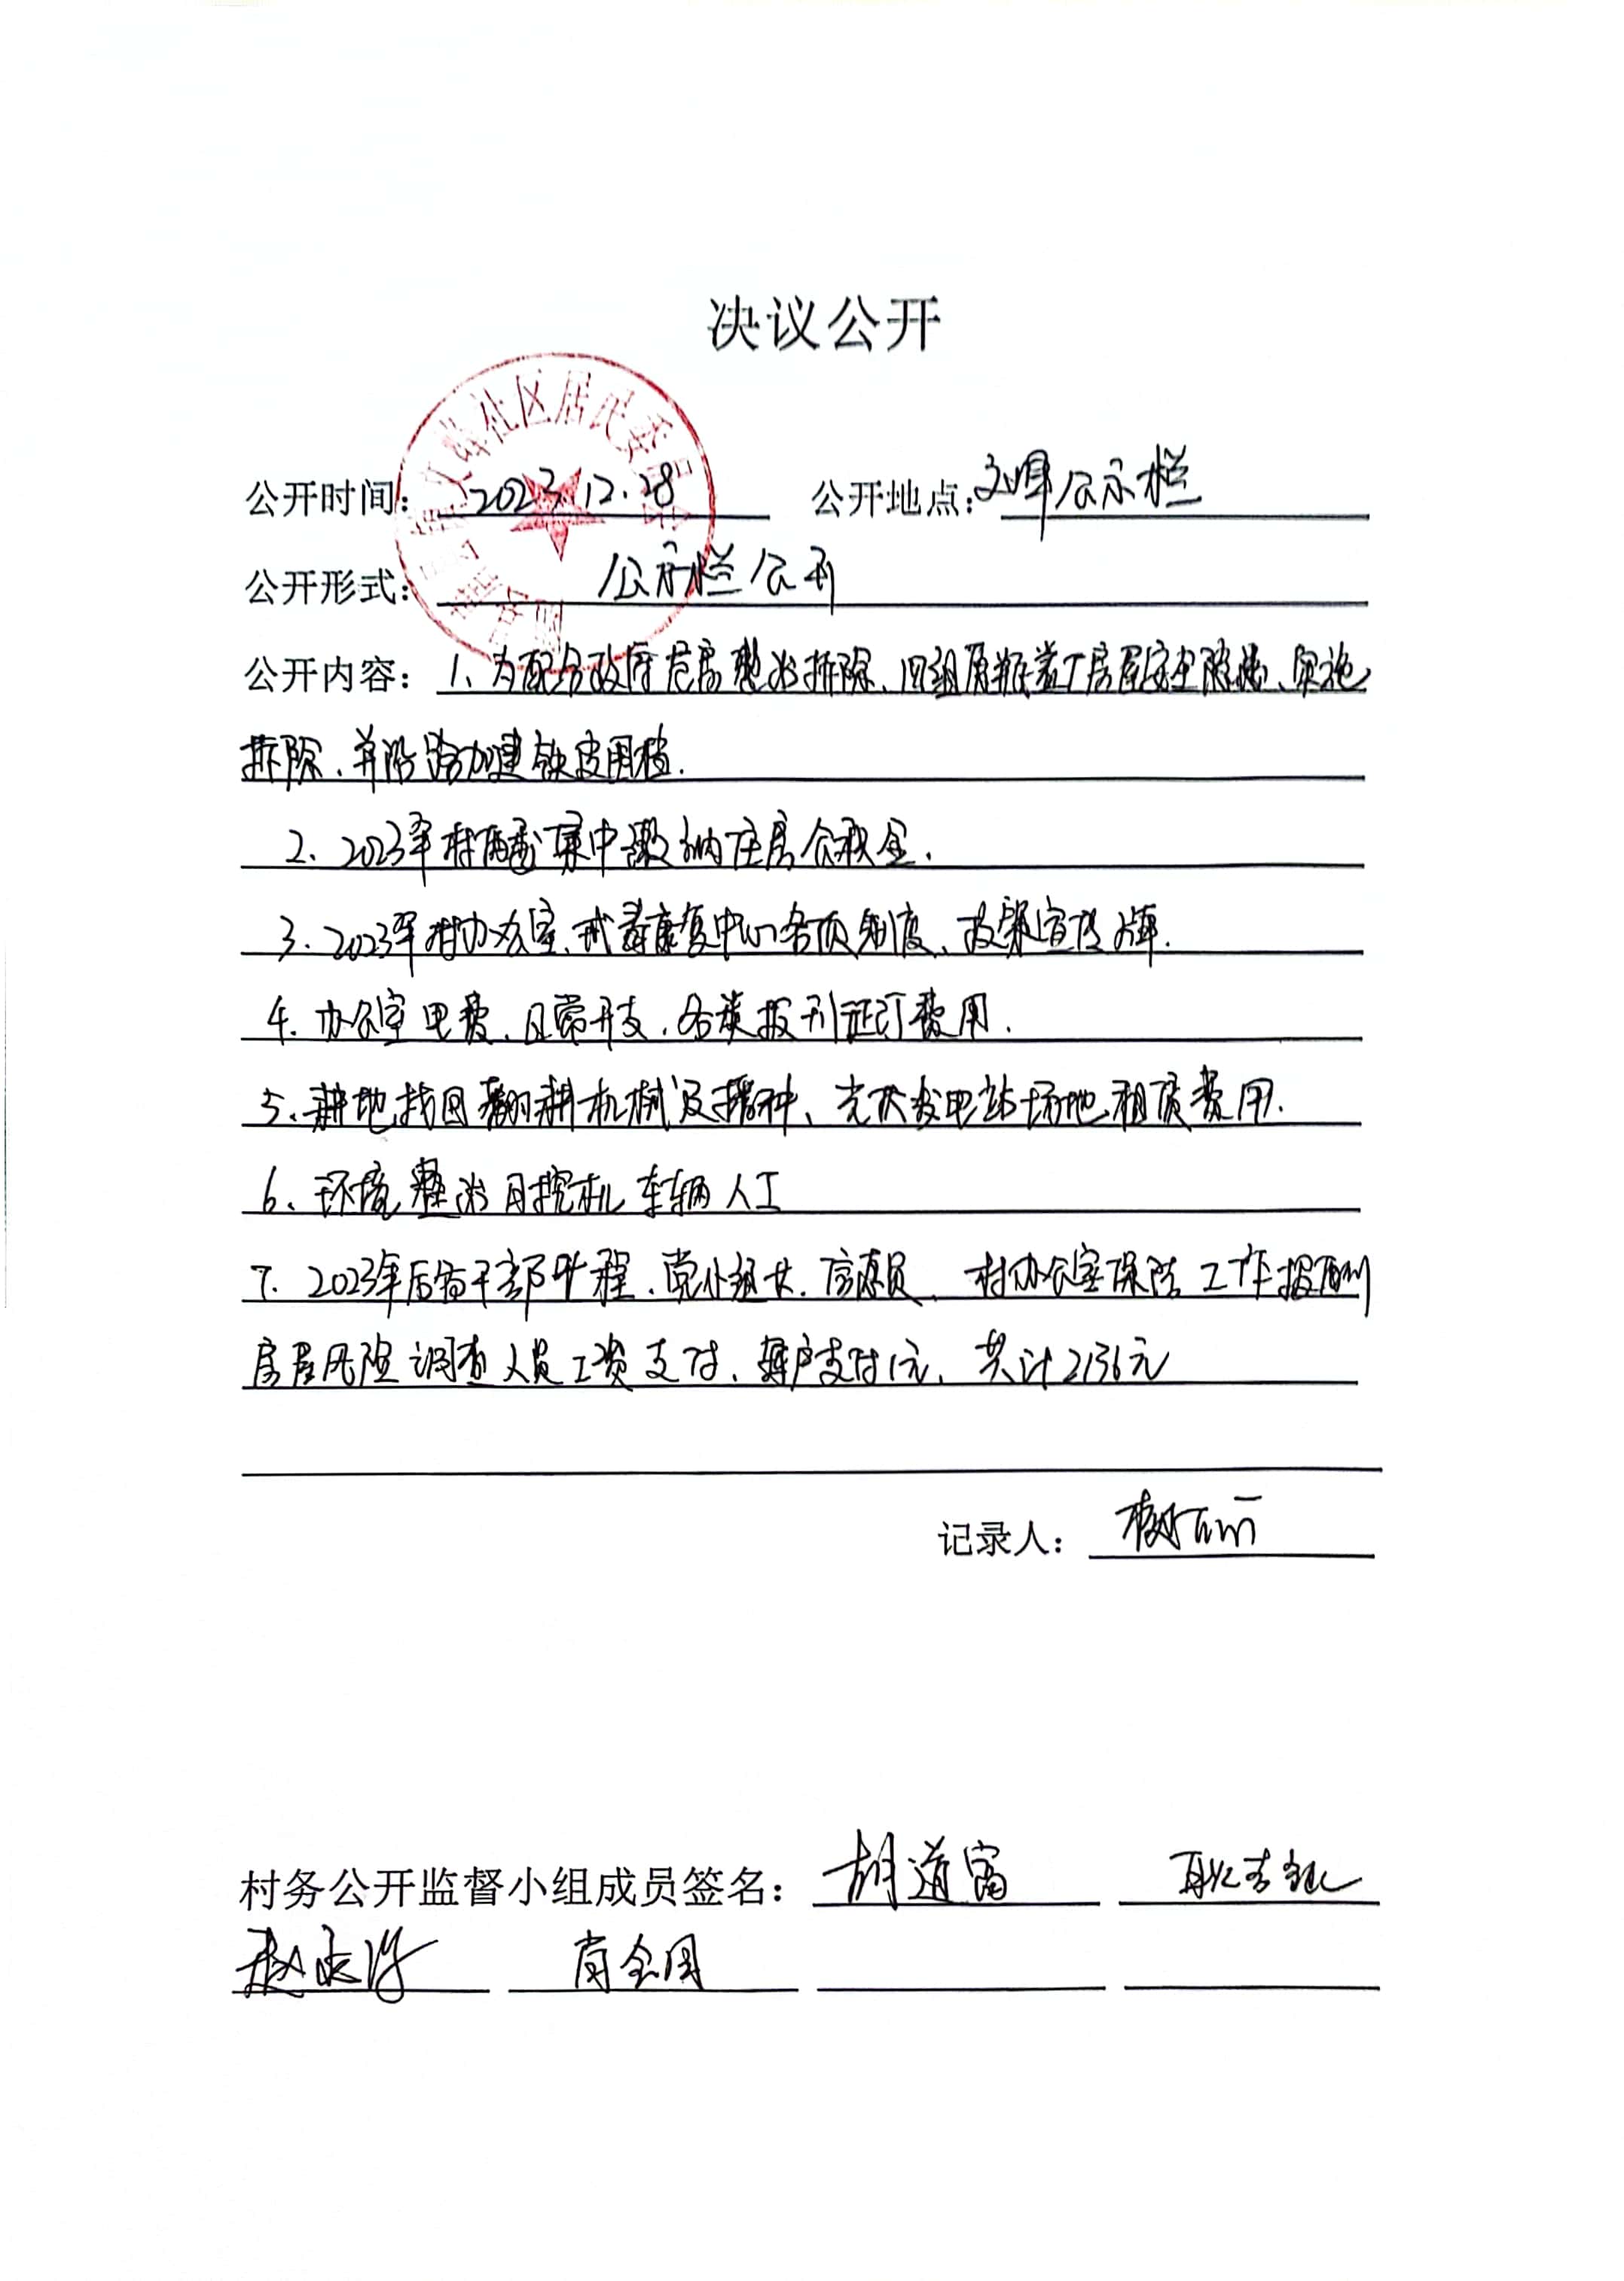 决议公开
社区居民委员会
公开时间: 2023.12.28 公开地点: 公示栏
公开形式: 公示栏公开
公开内容: 1、为配合政府危房整治排除、四组原瓶盖厂房屋安全隐患、实施
拆除、并沿路加建铁皮围挡.
2、2023年村两委集中缴纳住房公积金.
3、2023年村办公室、戒毒康复中心各项制度、政策宣传牌.
4、办公室电费、日常开支、各类报刊征订费用.
5、耕地找回翻耕机械及播种、光伏发电站场地租赁费用.
6、环境整治用挖机车辆人工
7、2023年后备干部叶程、党小组长、信息员、村办公室保洁工作报酬
房屋风险调查人员工资支付、每户支付1元、共计2136元
记录人:
村务公开监督小组成员签名: 胡道富
肖全国